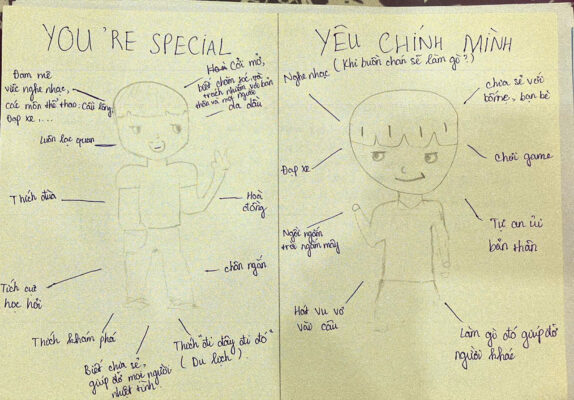 YOU'RE SPECIAL
Đam mê
việc nghe nhạc,
các môn thể thao: Cầu lông,
Đạp xe,...
Luôn lạc quan
Thích đùa
Tích cực
học hỏi
Thích khám phá
Biết chia sẻ,
giúp đỡ mọi người
nhiệt tình
Thích "đi đây đi đó"
(Du lịch)
chân ngắn
Hoà
đồng
Cởi mở,
biết chăm sóc, và
trách nhiệm với bản
thân và mọi người
da dầu
YÊU CHÍNH MÌNH
(Khi buồn chán sẽ làm gì?)
Nghe nhạc
Đạp xe
Ngồi ngắm
trời ngắm mây
Hát vu vơ
vài câu
chia sẻ với
bố mẹ, bạn bè
chơi game
Tự an ủi
bản thân
Làm gì đó giúp đỡ
người khác